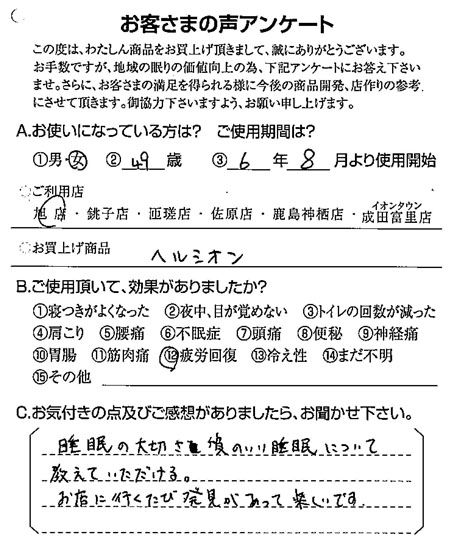 お客さまの声アンケート
この度は、わたしん商品をお買上げ頂きまして、誠にありがとうございます。
お手数ですが、地域の眠りの価値向上の為、下記アンケートにお答え下さい
ませ。さらに、お客さまの満足を得られる様に今後の商品開発、店作りの参考
にさせて頂きます。御協力下さいますよう、お願い申し上げます。
A.お使いになっている方は? ご使用期間は?
①男・女 ②49歳 ③6年8月より使用開始
ご利用店
旭店・銚子店・匝瑳店・佐原店・鹿島神栖店・イオンタウン成田富里店
お買上げ商品 ヘルミオン
B.ご使用頂いて、効果がありましたか?
①寝つきがよくなった ②夜中、目が覚めない ③トイレの回数が減った
④肩こり ⑤腰痛 ⑥不眠症 ⑦頭痛 ⑧便秘 ⑨神経痛
⑩胃腸 ⑪筋肉痛 ⑫疲労回復 ⑬冷え性 ⑭まだ不明
⑮その他
C.お気付きの点及びご感想がありましたら、お聞かせ下さい。
睡眠の大切さ のいい睡眠について
教えていただける。
お店に行くたび発見があって楽しいです。